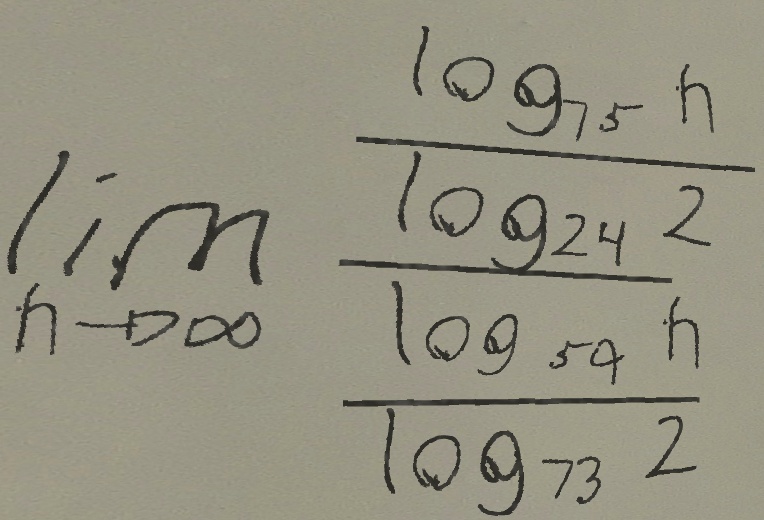 lim n→∞ log_75 n / log_24 2 / log_59 n / log_73 2